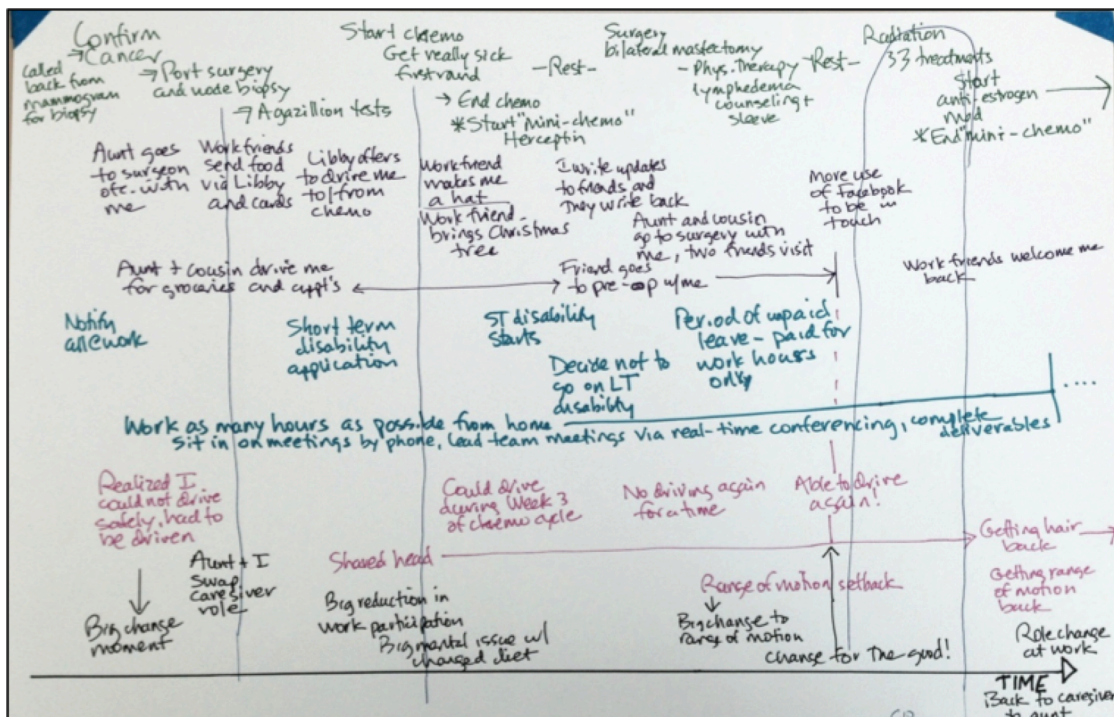 Confirm
→ Cancer
called
back from
mammogram
for biopsy
→ Port surgery
and node biopsy
→ Agazillion tests
Start chemo
Get really sick
first round
→ End chemo
*Start "mini-chemo"
Herceptin
-Rest-
Surgery
bilateral mastectomy
-Phys. Therapy
lymphedema
counseling +
sleeve
-Rest-
Radiation
33 treatments
Start
anti-estrogen
med
*End "mini-chemo"
Aunt goes
to surgeon
ofc. with
me
Work friends
send food
via Libby
and cards
Libby offers
to drive me
to/from
chemo
Work friend
makes me
a hat
Work friend
brings Christmas
tree
I write updates
to friends and
they write back
Aunt and cousin
go to surgery with
me, two friends visit
More use
of Facebook
to be in
touch
Aunt + cousin drive me
for groceries and appt's
Friend goes
to pre-op w/me
Work friends welcome me
back
Notify
all@work
Short term
disability
application
ST disability
starts
Decide not to
go on LT
disability
Period of unpaid
leave - paid for
work hours
only
....
Work as many hours as possible from home
Sit in on meetings by phone, Lead team meetings via real-time conferencing, complete
deliverables
Realized I
could not drive
safely, had to
be driven
Could drive
during Week 3
of chemo cycle
No driving again
for a time
Able to drive
again!
Shaved head
Getting hair
back
Range of motion setback
Getting range
of motion
back
Big change
moment
Aunt + I
swap
caregiver
role
Big reduction in
work participation
Big mental issue w/
changed diet
Big change to
range of motion
Change for the good!
Role change
at work
TIME
Back to caregiver
to aunt